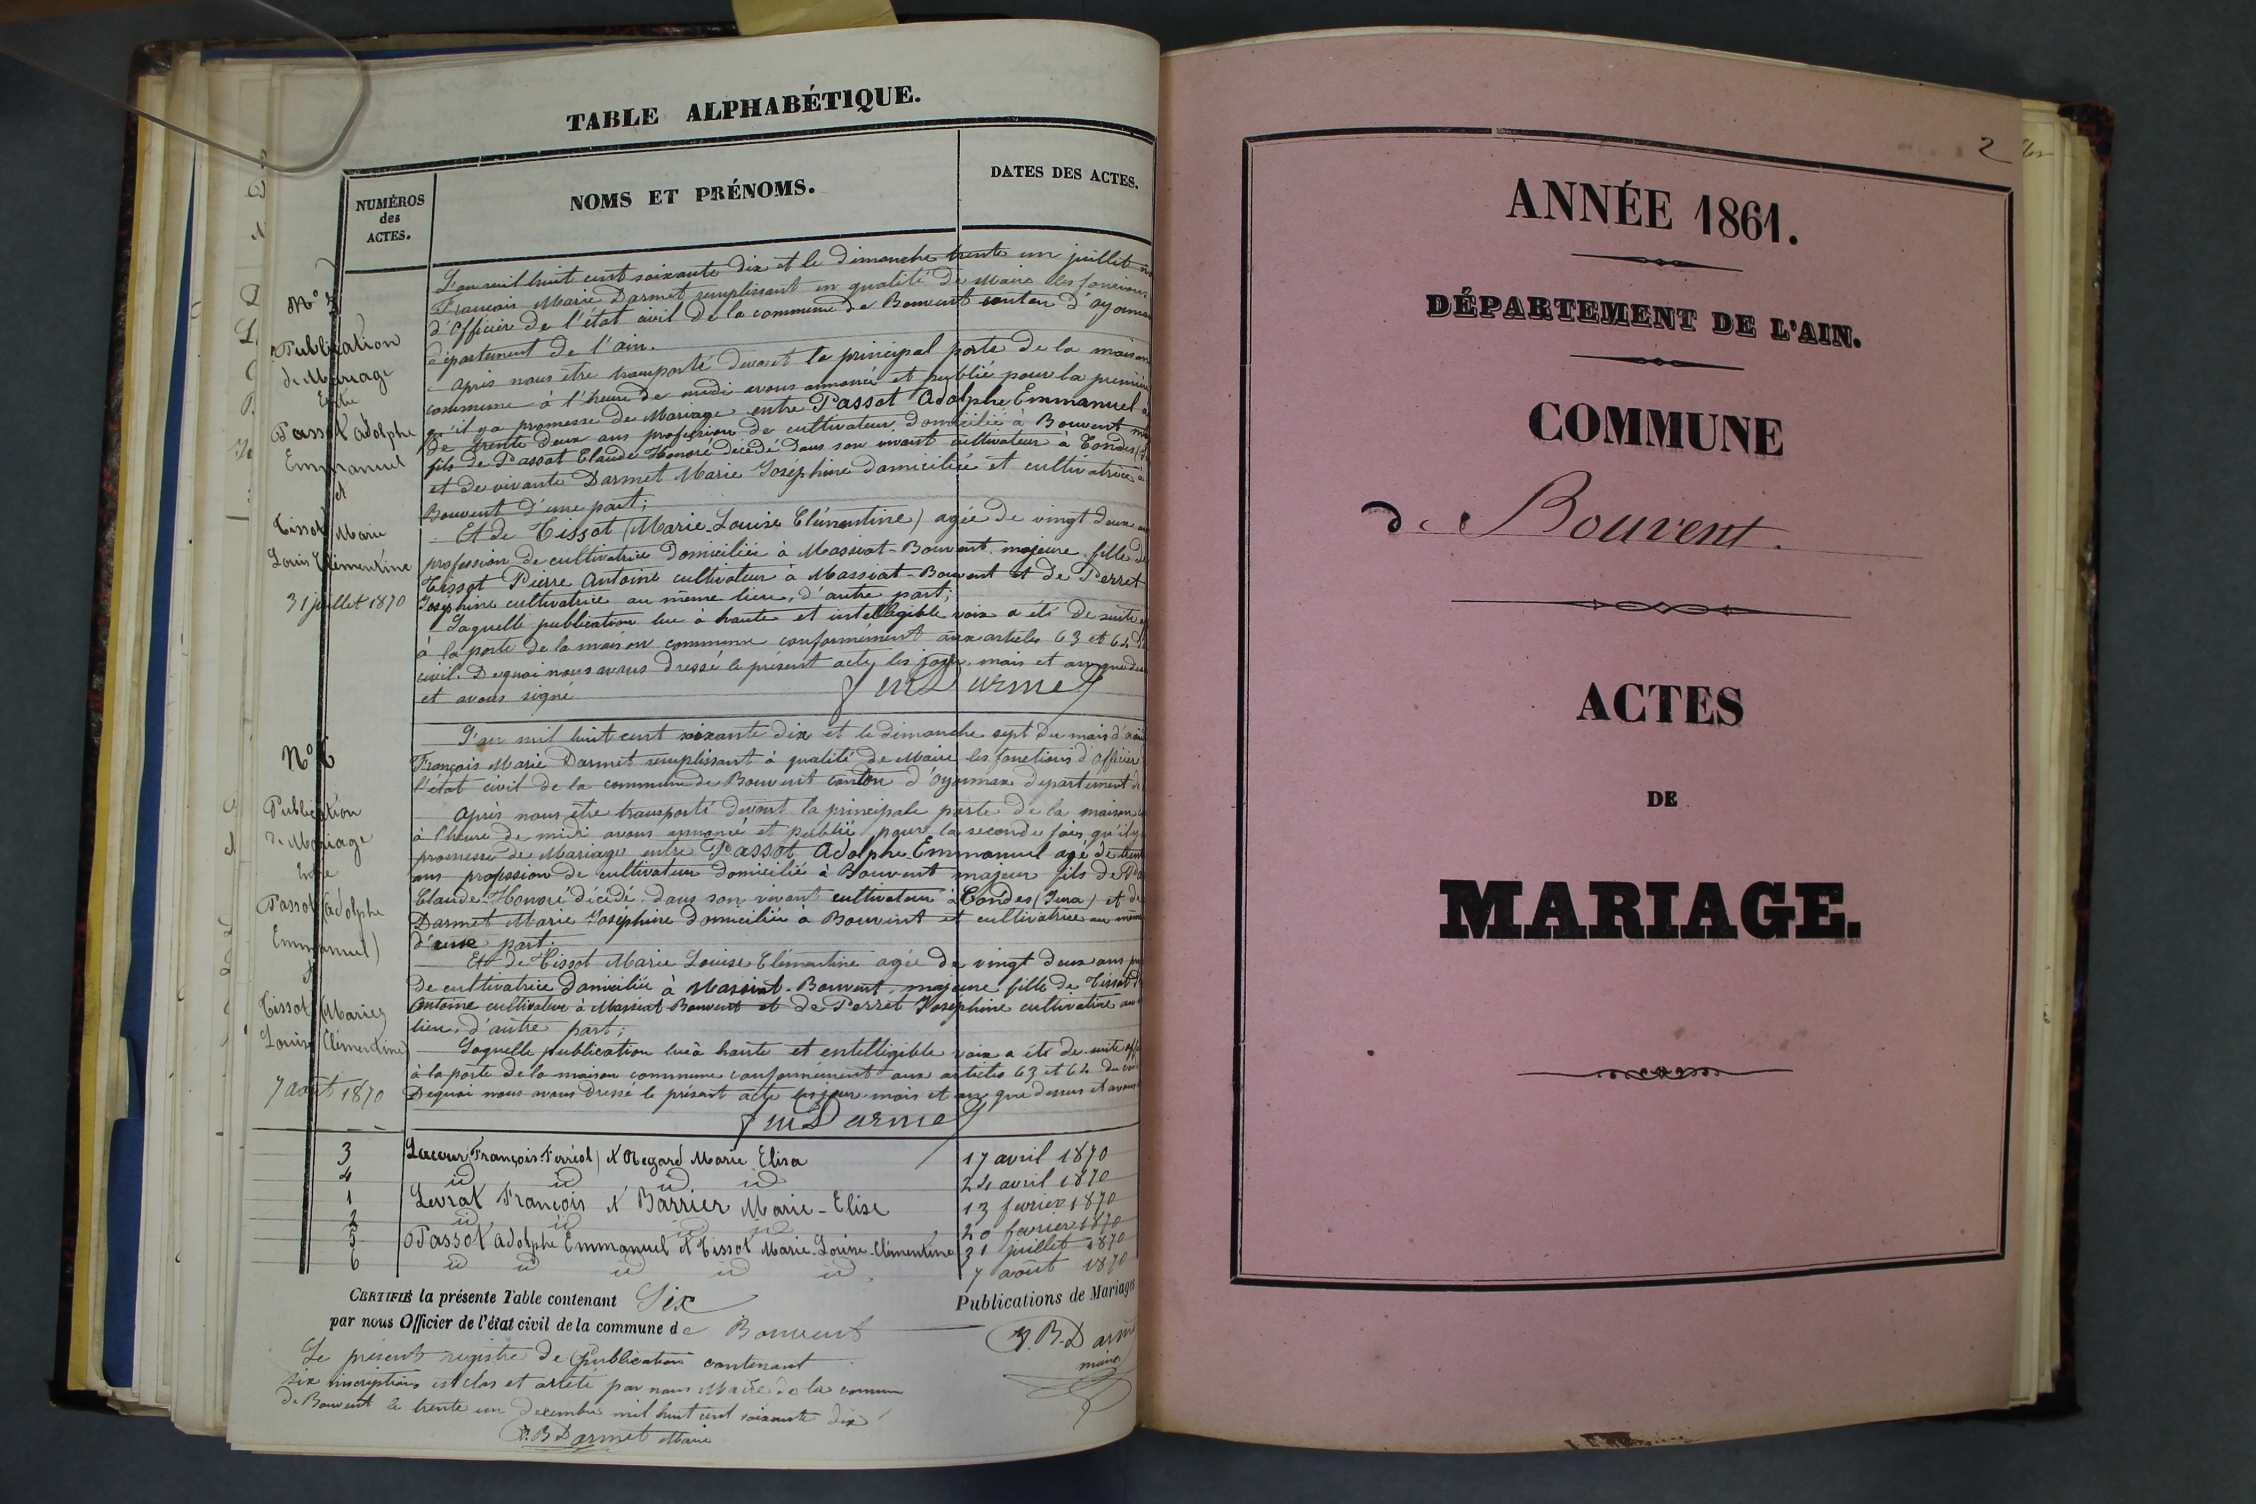 TABLE ALPHABÉTIQUE.
NUMÉROS
des
ACTES.
NOMS ET PRÉNOMS.
DATES DES ACTES.
N° 5
Publication
de Mariage
Entre
Passot Adolphe
Emmanuel
et
Tissot Marie
Louis Clémentine
31 juillet 1870
L'an mil huit cent soixante dix et le dimanche trente un juillet
François Marie Darmet remplissant en qualité de Maire les fonctions
d'Officier de l'état civil de la commune de Bouvent canton d'Oyonnax
département de l'ain.
Après nous être transporté devant la principal porte de la maison
commune à l'heure de midi avons annoncé et publié pour la première
qu'il y a promesse de Mariage entre Passot Adolphe Emmanuel
de trente deux ans profession de cultivateur domicilié à Bouvent
fils de Passot Claude Honoré décédé dans son vivant cultivateur à Condes
et de vivante Darmet Marie Joséphine domiciliée et cultivatrice à
Bouvent d'une part;
Et de Tissot (Marie Louise Clémentine) agée de vingt deux ans
profession de cultivatrice domiciliée à Massiat-Bouvent majeure fille de
Tissot Pierre Antoine cultivateur à Massiat-Bouvent et de Perret
Joséphine cultivatrice au même lieu, d'autre part;
Laquelle publication lue à haute et intelligible voix a été de suite
à la porte de la maison commune conformément aux articles 63 et 64
civil. De quoi nous avons dressé le présent acte les jour, mois et an que
et avons signé
fmDarmet
N° 6
Publication
de Mariage
Entre
Passot (Adolphe
Emmanuel)
et
Tissot (Marie
Louise Clémentine)
7 août 1870
L'an mil huit cent soixante dix et le dimanche sept du mois d'août
François Marie Darmet remplissant à qualité de Maire les fonctions d'Officier
l'état civil de la commune de Bouvent canton d'oyonnax département de
Après nous être transporté devant la principale porte de la maison
à l'heure de midi avons annoncé et publié pour la seconde fois qu'il y
promesse de Mariage entre Passot Adolphe Emmanuel agé de
ans profession de cultivateur domicilié à Bouvent majeur fils de
Claude-Honoré décédé dans son vivant cultivateur à Condes (Jura) et de
Darmet Marie Joséphine domiciliée à Bouvent et cultivatrice au même
d'une part.
Et de Tissot Marie Louise Clémentine agée de vingt deux ans
de cultivatrice domiciliée à Massiat-Bouvent, majeure fille de Tissot
Antoine cultivateur à Massiat Bouvent et de Perret Joséphine cultivatrice au
lieu, d'autre part;
Laquelle publication lue à haute et entelligible voix a été de suite
à la porte de la maison commune conformément aux articles 63 et 64 du
De quoi nous avons dressé le présent acte les jour mois et an que dessus et avons
fmDarmet
3 Lacour (François-Ferréol) et Regard Marie Elisa 17 avril 1870
4 id id id id 24 avril 1870
1 Levrat François et Barrier Marie-Elise 13 fevrier 1870
2 id id id id 20 fevrier 1870
5 Passot Adolphe Emmanuel et Tissot Marie-Louise-Clémentine 31 juillet 1870
6 id id id id id 7 août 1870
CERTIFIÉ la présente Table contenant Six Publications de Mariages
par nous Officier de l'état civil de la commune de Bouvent
Le présent registre de Publication contenant
six inscriptions est clos et arrêté par nous Maire de la commune
de Bouvent le trente un decembre mil huit cent soixante dix
J.B Darmet Maire
maire
2
ANNÉE 1861.
DÉPARTEMENT DE L'AIN.
COMMUNE
de Bouvent.
ACTES
DE
MARIAGE.